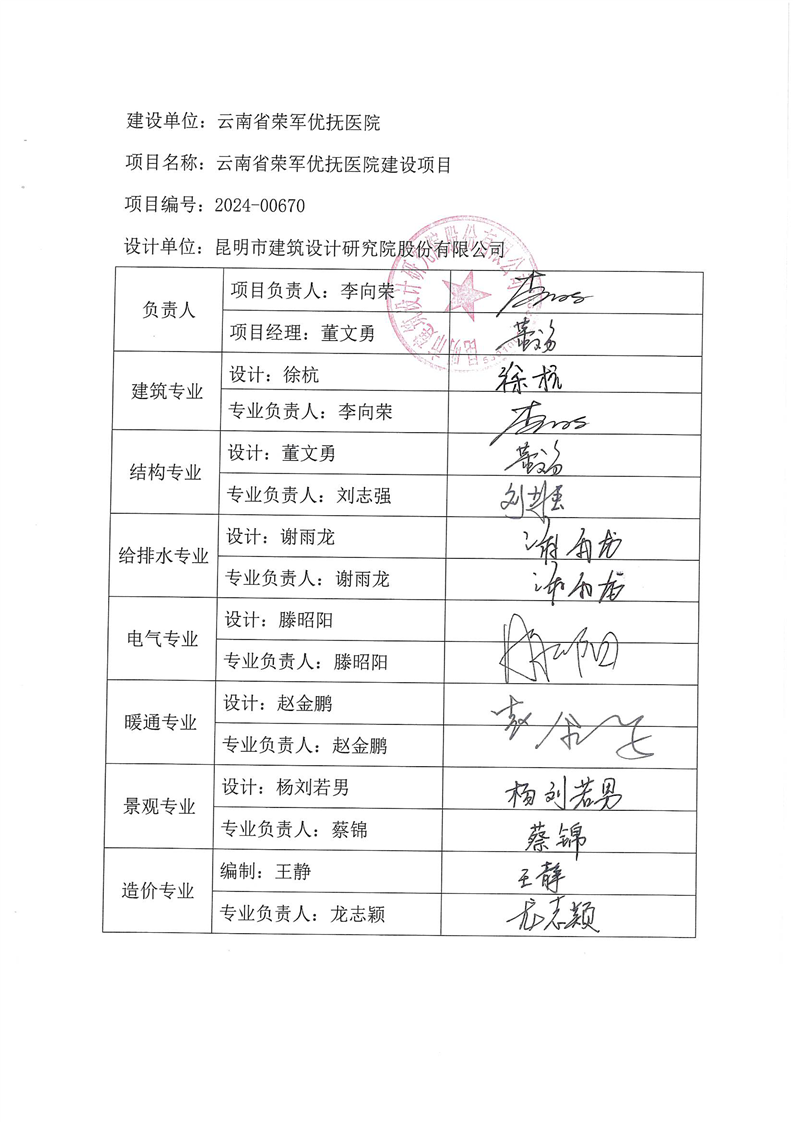 建设单位：云南省荣军优抚医院
项目名称：云南省荣军优抚医院建设项目
项目编号：2024-00670
设计单位：昆明市建筑设计研究院股份有限公司
负责人
项目负责人：李向荣
项目经理：董文勇
建筑专业
设计：徐杭
徐杭
专业负责人：李向荣
结构专业
设计：董文勇
专业负责人：刘志强
刘志强
给排水专业
设计：谢雨龙
谢雨龙
专业负责人：谢雨龙
谢雨龙
电气专业
设计：滕昭阳
专业负责人：滕昭阳
暖通专业
设计：赵金鹏
专业负责人：赵金鹏
景观专业
设计：杨刘若男
杨刘若男
专业负责人：蔡锦
蔡锦
造价专业
编制：王静
王静
专业负责人：龙志颖
龙志颖